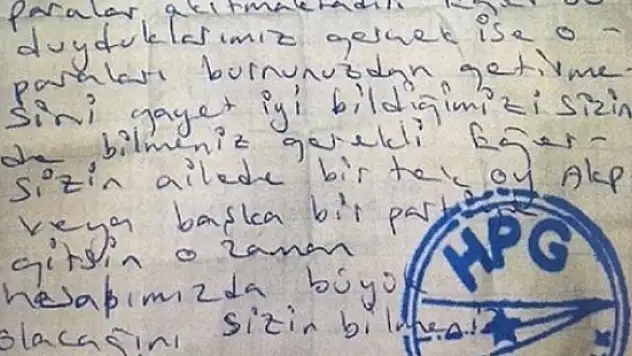 paralar akıtmaktadır. Eğer bu
duyduklarımız gerçek ise o -
paraları burnunuzdan getirme-
sini gayet iyi bildiğimizi sizin
de bilmeniz gerekli Eğer-
sizin ailede bir tek oy Akp
veya başka bir
gitsin o zaman
hesabımızda büyük
olacağını sizin
HPG